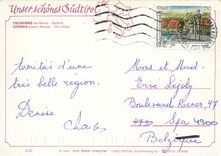 Unser schönes Südtirol
TSCHERMS bei Meran - Südtirol
CERMES presso Merano - Alto Adige
Amitiés d'une
très belle région.
Denise
Charles
Mons et Mad.
Eric Lejoly
Boulevard Rener, 47
Spa 4900
Belgique